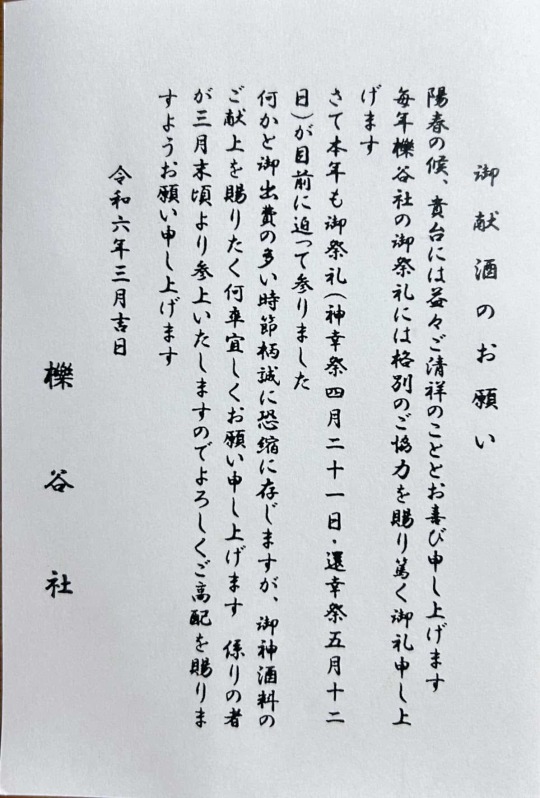 御献酒のお願い
陽春の候、貴台には益々ご清祥のこととお喜び申し上げます
毎年櫟谷社の御祭礼には格別のご協力を賜り篤く御礼申し上
げます
さて本年も御祭礼(神幸祭四月二十一日・還幸祭五月十二
日)が目前に迫って参りました
何かと御出費の多い時節柄誠に恐縮に存じますが、御神酒料の
ご献上を賜りたく何卒宜しくお願い申し上げます 係りの者
が三月末頃より参上いたしますのでよろしくご高配を賜りま
すようお願い申し上げます
令和六年三月吉日
櫟谷社